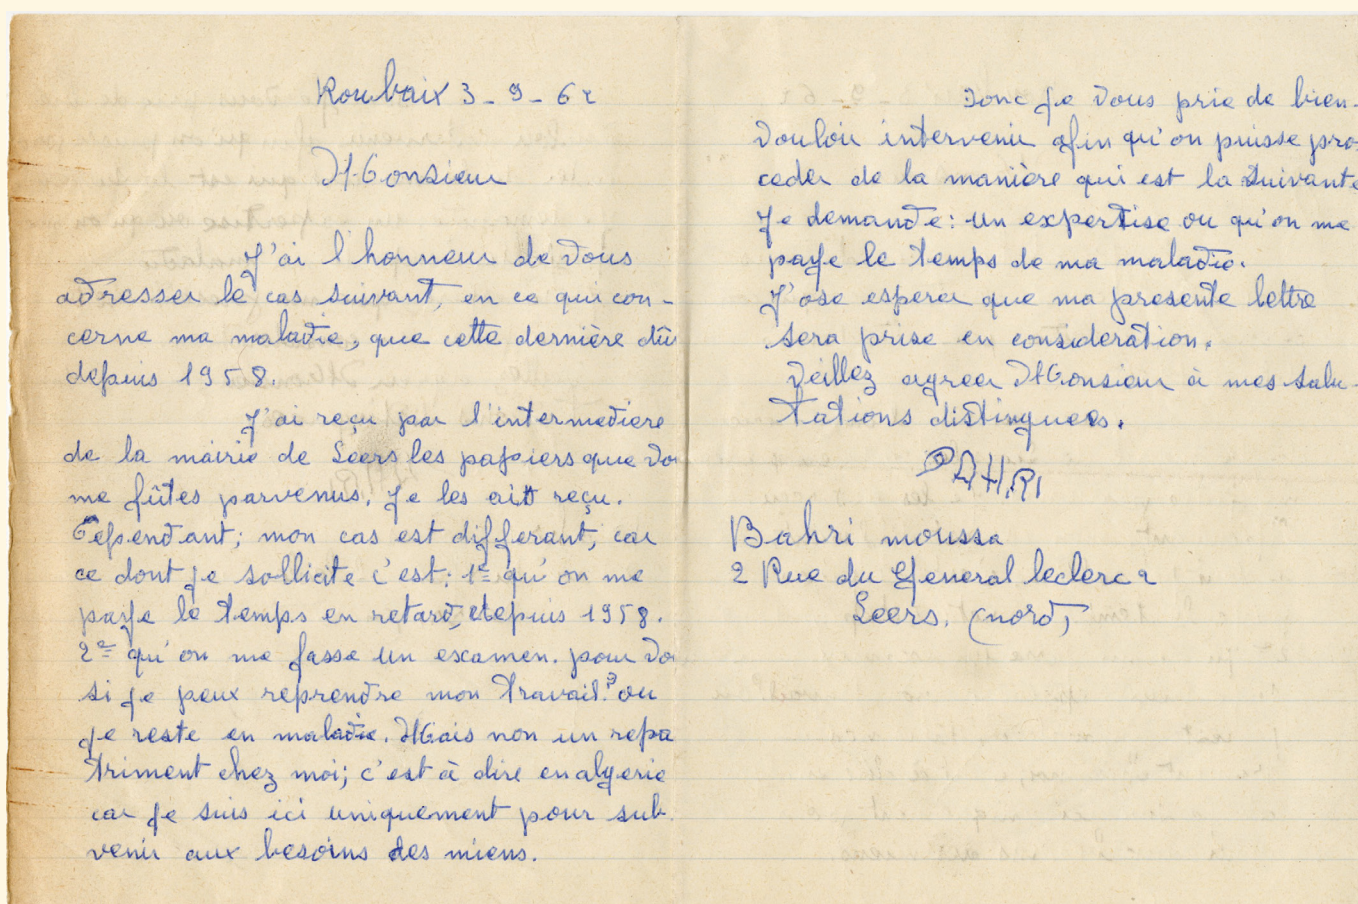 Roubaix 3 - 9 - 62
Monsieur
J'ai l'honneur de vous
adresser le cas suivant, en ce qui con-
cerne ma maladie, que cette dernière dû
depuis 1958.
J'ai reçu par l'intermediere
de la mairie de Leers les papiers que vo
me fûtes parvenus. Je les ait reçu.
Cependant; mon cas est differant, car
ce dont je sollicite c'est: 1º qu'on me
paye le temps en retard, depuis 1958.
2º qu'on me fasse un examen. pour vo
si je peux reprendre mon travail? ou
je reste en maladie. Mais non un repa
triment chez moi; c'est à dire en algerie
car je suis ici uniquement pour sub-
venir aux besoins des miens.
Donc je vous prie de bien-
vouloir intervenir afin qu'on puisse pro
ceder de la manière qui est la suivante
Je demande: un expertise ou qu'on me
paye le temps de ma maladie.
J'ose esperer que ma presente lettre
sera prise en consideration.
Veillez agreer Monsieur à mes salu-
tations distinguees.
BAHRI
Bahri moussa
2 Rue du General leclerc 2
Leers. (nord)